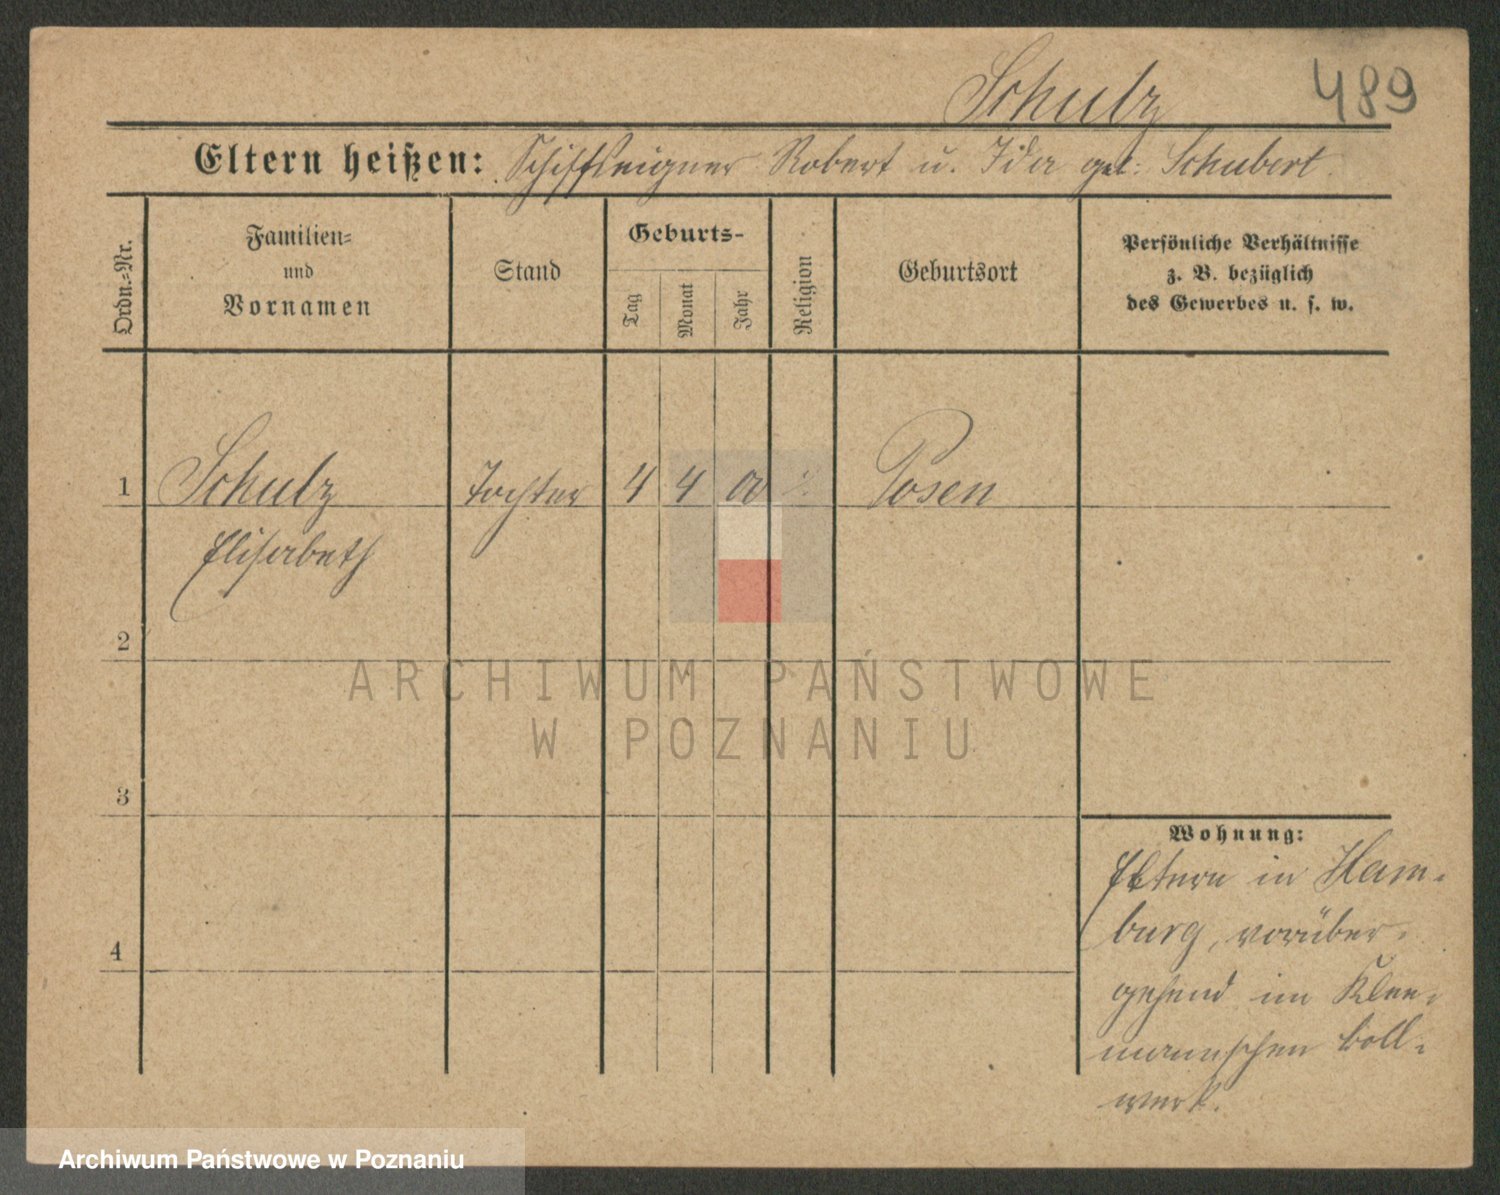 Schulz
489
Eltern heißen: Schiffseigner Robert u. Ida geb: Schubert.
Ordn.=Nr.
Familien=
und
Vornamen
Stand
Geburts-
Tag
Monat
Jahr
Religion
Geburtsort
Persönliche Verhältnisse
z. B. bezüglich
des Gewerbes u. s. w.
1 Schulz Tochter 4 4 Posen
Elisabeth
2
ARCHIWUM PAŃSTWOWE
W POZNANIU
3
Wohnung:
Eltern in Ham-
burg, vorüber-
4
gehend im Klee-
mannschen Boll-
werk.
Archiwum Państwowe w Poznaniu